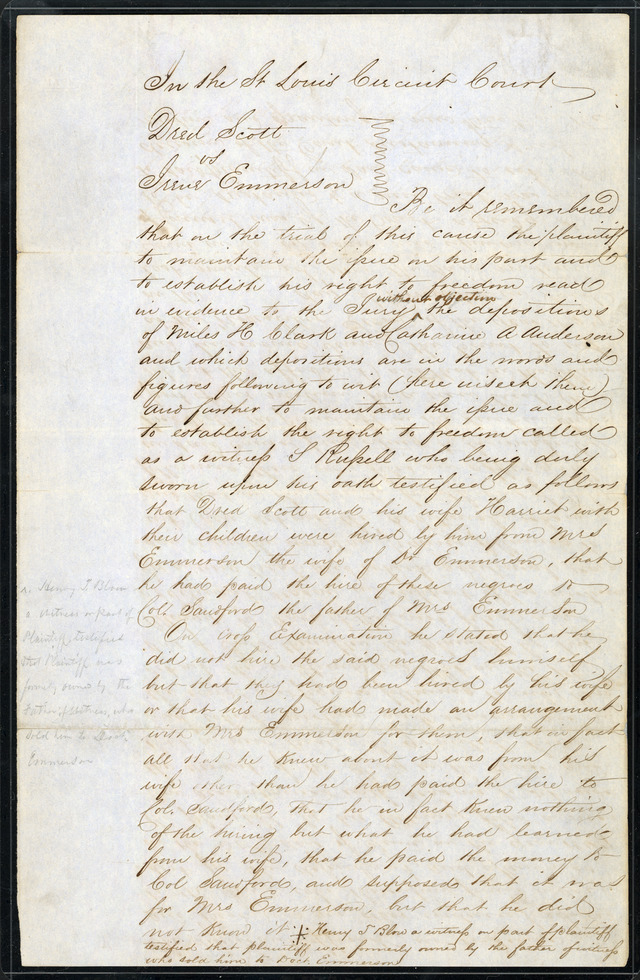 In the St Louis Circuit Court
Dred Scott
vs
Irene Emmerson
Be it remembered
that on the trial of this cause the plaintiff
to maintain the issue on his part and
to establish his right to freedom read
without objection
in evidence to the Jury the depositions
of Miles H Clark and Catharine A Anderson
and which depositions are in the words and
figures following to wit (here insert them)
and further to maintain the issue and
to establish the right to freedom called
as a witness S Russell who being duly
sworn upon his oath testified as follows
that Dred Scott and his wife Harriet with
their children were hired by him from Mrs
Emmerson the wife of Dr Emmerson, that
he had paid the hire of these negroes to
Col. Sandford the father of Mrs Emmerson
On cross Examination he stated that he
did not hire the said negroes himself
but that they had been hired by his wife
or that his wife had made an arrangement
with Mrs Emmerson for them, that in fact
all that he knew about it was from his
wife other than he had paid the hire to
Col. Sandford, that he in fact knew nothing
of the hiring but what he had learned
from his wife, that he paid the money to
Col Sandford, and supposed that it was
for Mrs Emmerson, but that he did
not know it Henry T Blow a witness on part of plaintiff
testified that plaintiff was formerly owned by the father of witness
who sold him to Doct. Emmerson
Henry T Blow
a witness on part of
Plaintiff testified
that Plaintiff was
formerly owned by the
Father of witness, who
sold him to Doct.
Emmerson